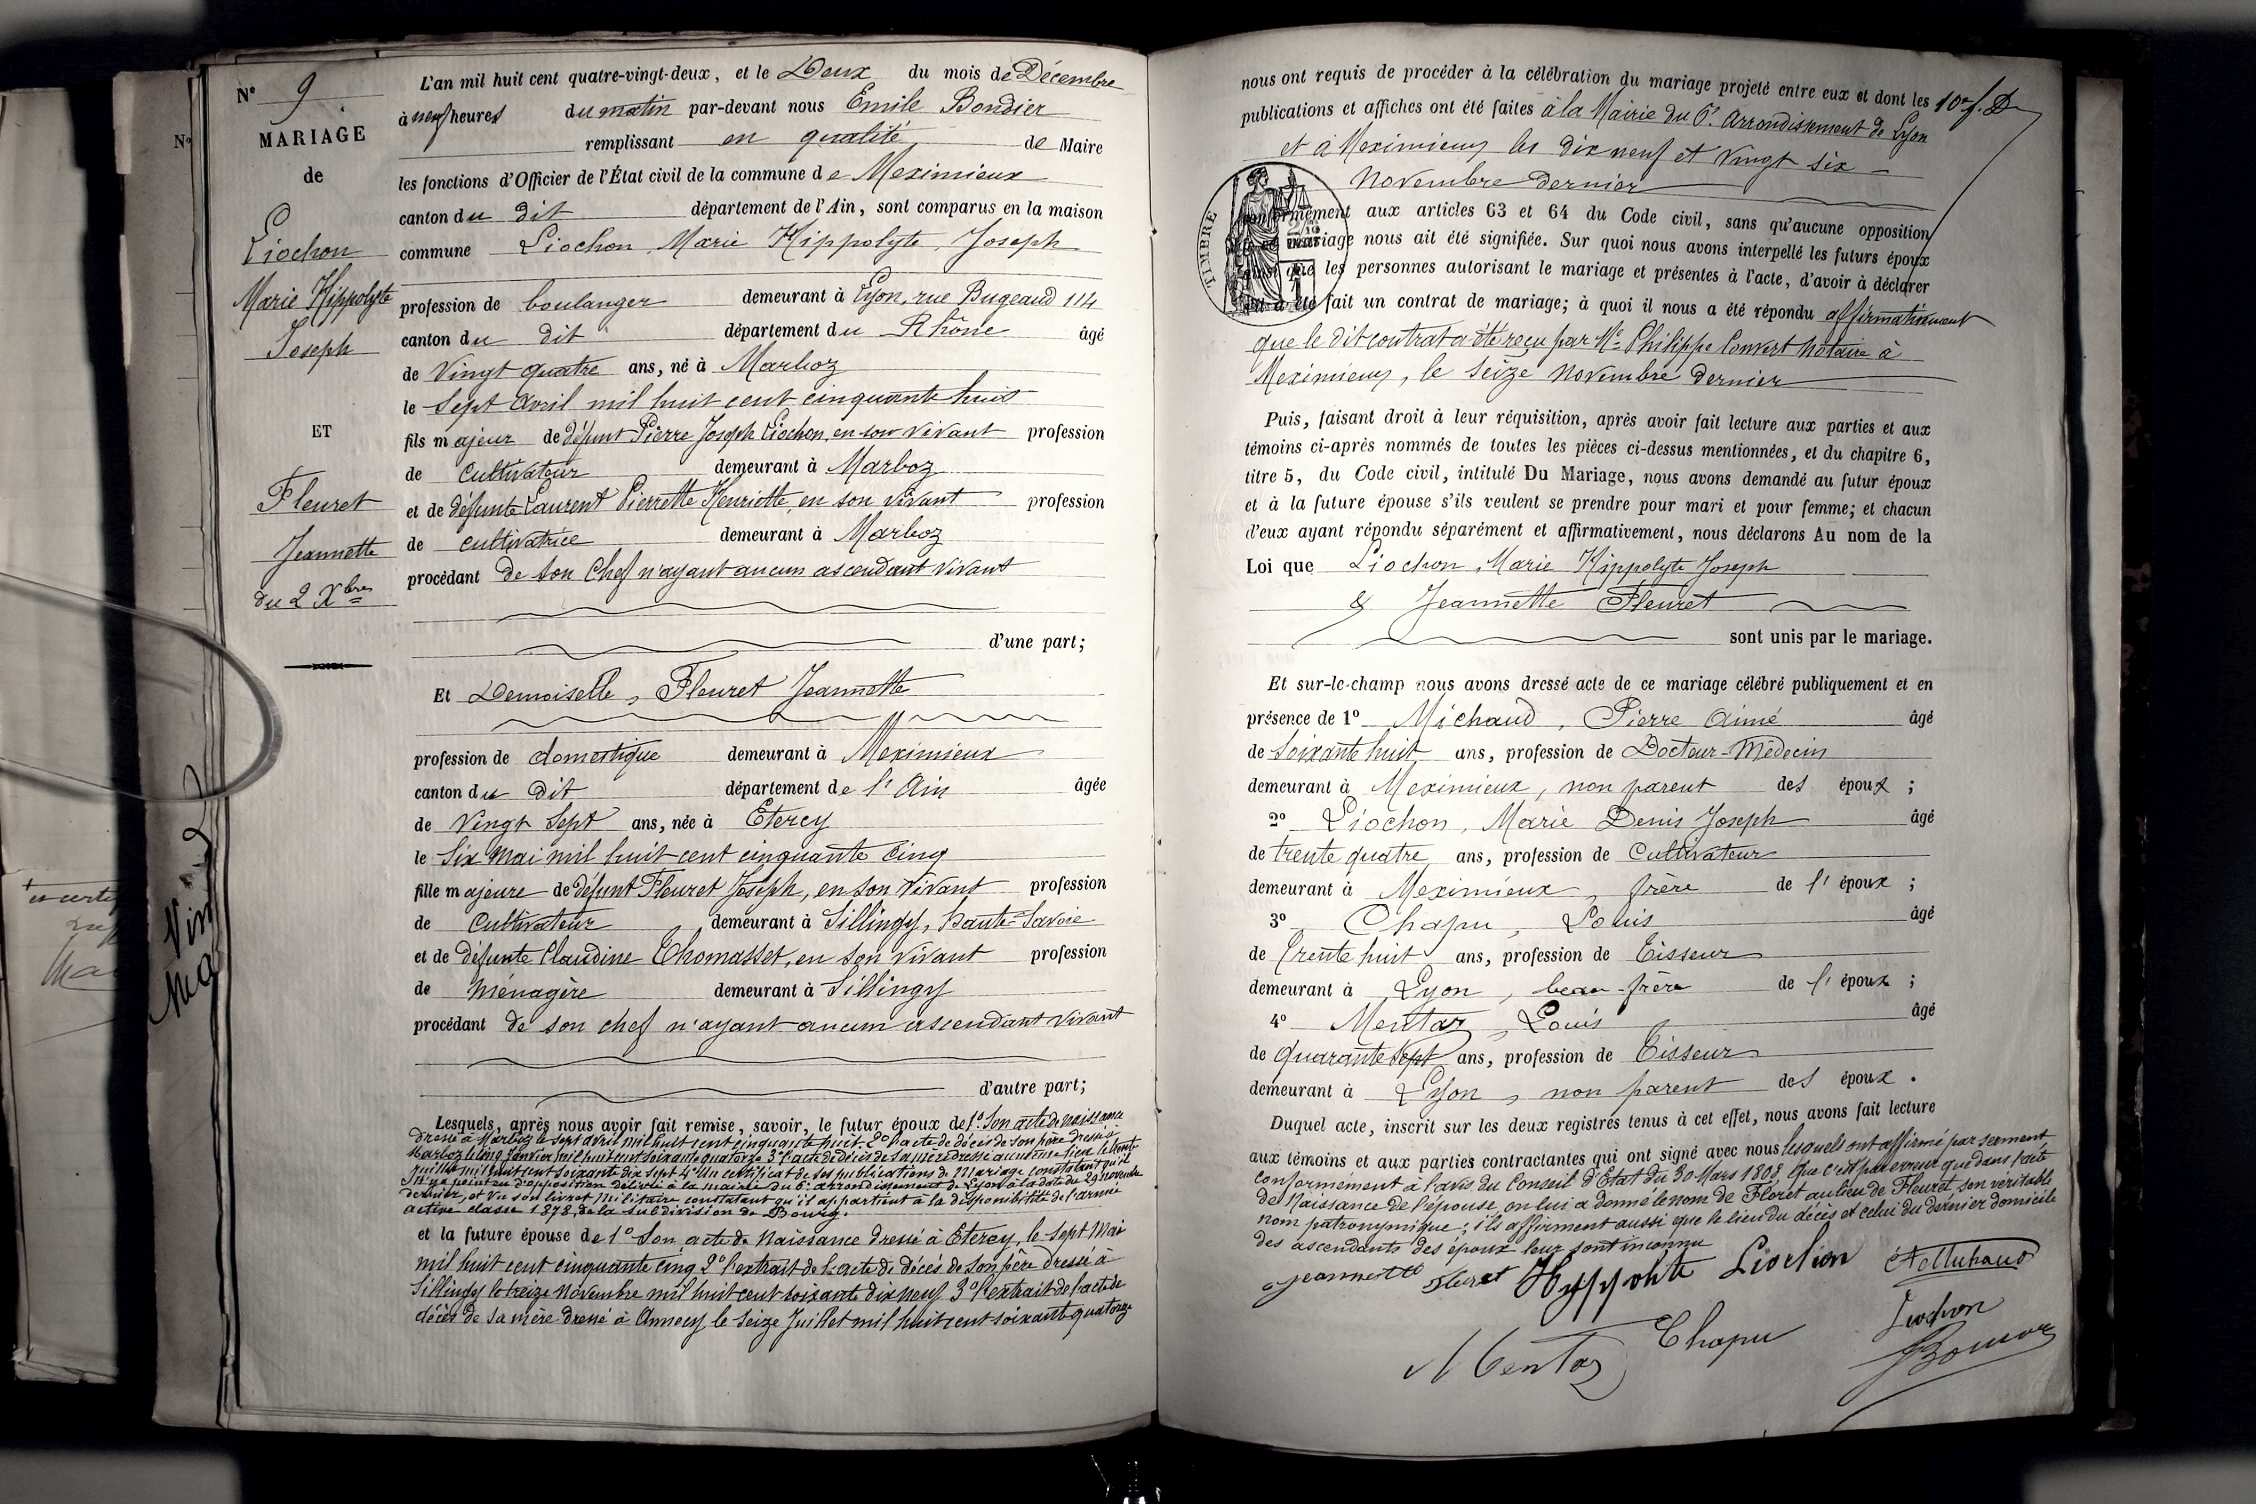 N° 9
MARIAGE
de
Liochon
Marie Hippolyte
Joseph
ET
Fleuret
Jeannette
du 2 Xbre
L'an mil huit cent quatre-vingt-deux, et le Deux du mois de Décembre
à neuf heures du matin par-devant nous Emile Bondier
remplissant en qualité de Maire
les fonctions d'Officier de l'État civil de la commune de Meximieux
canton du dit département de l'Ain, sont comparus en la maison
commune Liochon, Marie Hippolyte, Joseph
profession de boulanger demeurant à Lyon, rue Bugeaud 114
canton du dit département du Rhône âgé
de Vingt quatre ans, né à Marboz
le Sept Avril mil huit cent cinquante huit
fils majeur de défunt Pierre Joseph Liochon, en son vivant profession
de Cultivateur demeurant à Marboz
et de défunte Laurent Pierrette Henriette, en son vivant profession
de cultivatrice demeurant à Marboz
procédant de son Chef n'ayant aucun ascendant vivant
d'une part;
Et Demoiselle, Fleuret Jeannette
profession de domestique demeurant à Meximieux
canton du dit département de l'Ain âgée
de Vingt Sept ans, née à Etercy
le Six Mai mil huit cent cinquante Cinq
fille majeure de défunt Fleuret Joseph, en son vivant profession
de Cultivateur demeurant à Sillingy, Haute-Savoie
et de défunte Claudine Thomasset, en son vivant profession
de Ménagère demeurant à Sillingy
procédant de son chef n'ayant aucun ascendant vivant
d'autre part;
Lesquels, après nous avoir fait remise, savoir, le futur époux de 1° Son acte de naissance
dressé à Marboz le sept avril mil huit cent cinquante huit 2° l'acte de décès de son père dressé à
Marboz le cinq Janvier mil huit cent soixante quatorze 3° l'acte de décès de sa mère dressé au même lieu le trente
juillet mil huit cent soixante dix sept 4° Un certificat de ses publications de Mariage constatant qu'il
n'y a point eu d'opposition délivré à la mairie du 6e arrondissement de Lyon à la date du 29 novembre
dernier, et Vu son livret militaire constatant qu'il appartient à la disponibilité de l'armée
active classe 1878, de la subdivision de Bourg.
et la future épouse de 1° Son acte de Naissance dressé à Etercy, le Sept Mai
mil huit cent cinquante Cinq 2° l'extrait de l'acte de décès de son père dressé à
Sillingy le treize Novembre mil huit cent soixante dix neuf 3° l'extrait de l'acte de
décès de sa mère dressé à Annecy le Seize Juillet mil huit cent soixante quatorze
nous ont requis de procéder à la célébration du mariage projeté entre eux et dont les
publications et affiches ont été faites à la Mairie du 6e Arrondissement de Lyon
et à Meximieux les dix neuf et Vingt six
Novembre dernier
conformément aux articles 63 et 64 du Code civil, sans qu'aucune opposition
mariage nous ait été signifiée. Sur quoi nous avons interpellé les futurs époux
ainsi que les personnes autorisant le mariage et présentes à l'acte, d'avoir à déclarer
été fait un contrat de mariage; à quoi il nous a été répondu affirmativement
que le dit contrat a été reçu par Me Philippe Convert Notaire à
Meximieux, le seize Novembre dernier
TIMBRE
Puis, faisant droit à leur réquisition, après avoir fait lecture aux parties et aux
témoins ci-après nommés de toutes les pièces ci-dessus mentionnées, et du chapitre 6,
titre 5, du Code civil, intitulé Du Mariage, nous avons demandé au futur époux
et à la future épouse s'ils veulent se prendre pour mari et pour femme; et chacun
d'eux ayant répondu séparément et affirmativement, nous déclarons Au nom de la
Loi que Liochon, Marie Hippolyte Joseph
& Jeannette Fleuret
sont unis par le mariage.
Et sur-le-champ nous avons dressé acte de ce mariage célébré publiquement et en
présence de 1° Michaud, Pierre Aimé âgé
de Soixante huit ans, profession de Docteur-Médecin
demeurant à Meximieux, non parent des époux ;
2° Liochon, Marie Denis Joseph âgé
de trente quatre ans, profession de Cultivateur
demeurant à Meximieux, frère de l'époux ;
3° Chapu, Louis âgé
de Trente huit ans, profession de Tisseur
demeurant à Lyon, beau-frère de l'époux ;
4° Mentaz, Louis âgé
de Quarante Sept ans, profession de Tisseur
demeurant à Lyon, non parent des époux.
Duquel acte, inscrit sur les deux registres tenus à cet effet, nous avons fait lecture
aux témoins et aux parties contractantes qui ont signé avec nous lesquels ont affirmé par serment
conformément à l'avis du Conseil d'Etat du 30 Mars 1808, que c'est par erreur que dans l'acte
de Naissance de l'épouse, on lui a donné le nom de Floret au lieu de Fleuret, son véritable
nom patronymique; ils affirment aussi que le lieu du décès et celui du dernier domicile
des ascendants des époux leur sont inconnu
jeannette fleuret Hyppolite Liochon
Mentaz Chapu Liochon